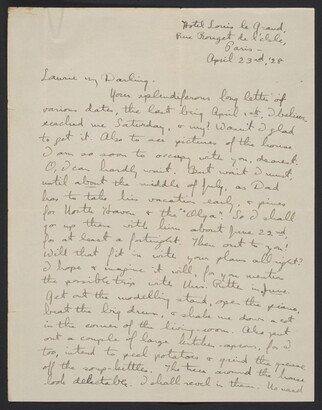 Hotel Louis le Grand,
Rue Rouget de l'Isle,
Paris -
April 23rd, '28
Laurie my Darling.
Your splendiferous long letter of
various dates, the last being April 1st, I believe,
reached me Saturday, & my! Wasn't I glad
to get it. Also to see pictures of the house
I am so soon to occupy with you, dearest.
O, I can hardly wait. But wait I must,
until about the middle of July, as Dad
has to take his vacation early, & pines
for North Haven & the "Olga". So I shall
go up there with him about June 22nd,
for at least a fortnight. Then out to you!
Will that fit in with your plans allright?
I hope & imagine it will, for you mention
the possible trip with Mrs. in June.
Get out the modelling stand, open the piano,
beat the big drum, & shake me down a cot
in the corner of the living-room. Also put
out a couple of large kitchen-aprons, for I
too, intend to peel potatoes & grind the grease
off the soup-kettles. The trees around the house
look delectable. I shall revel in them. We need